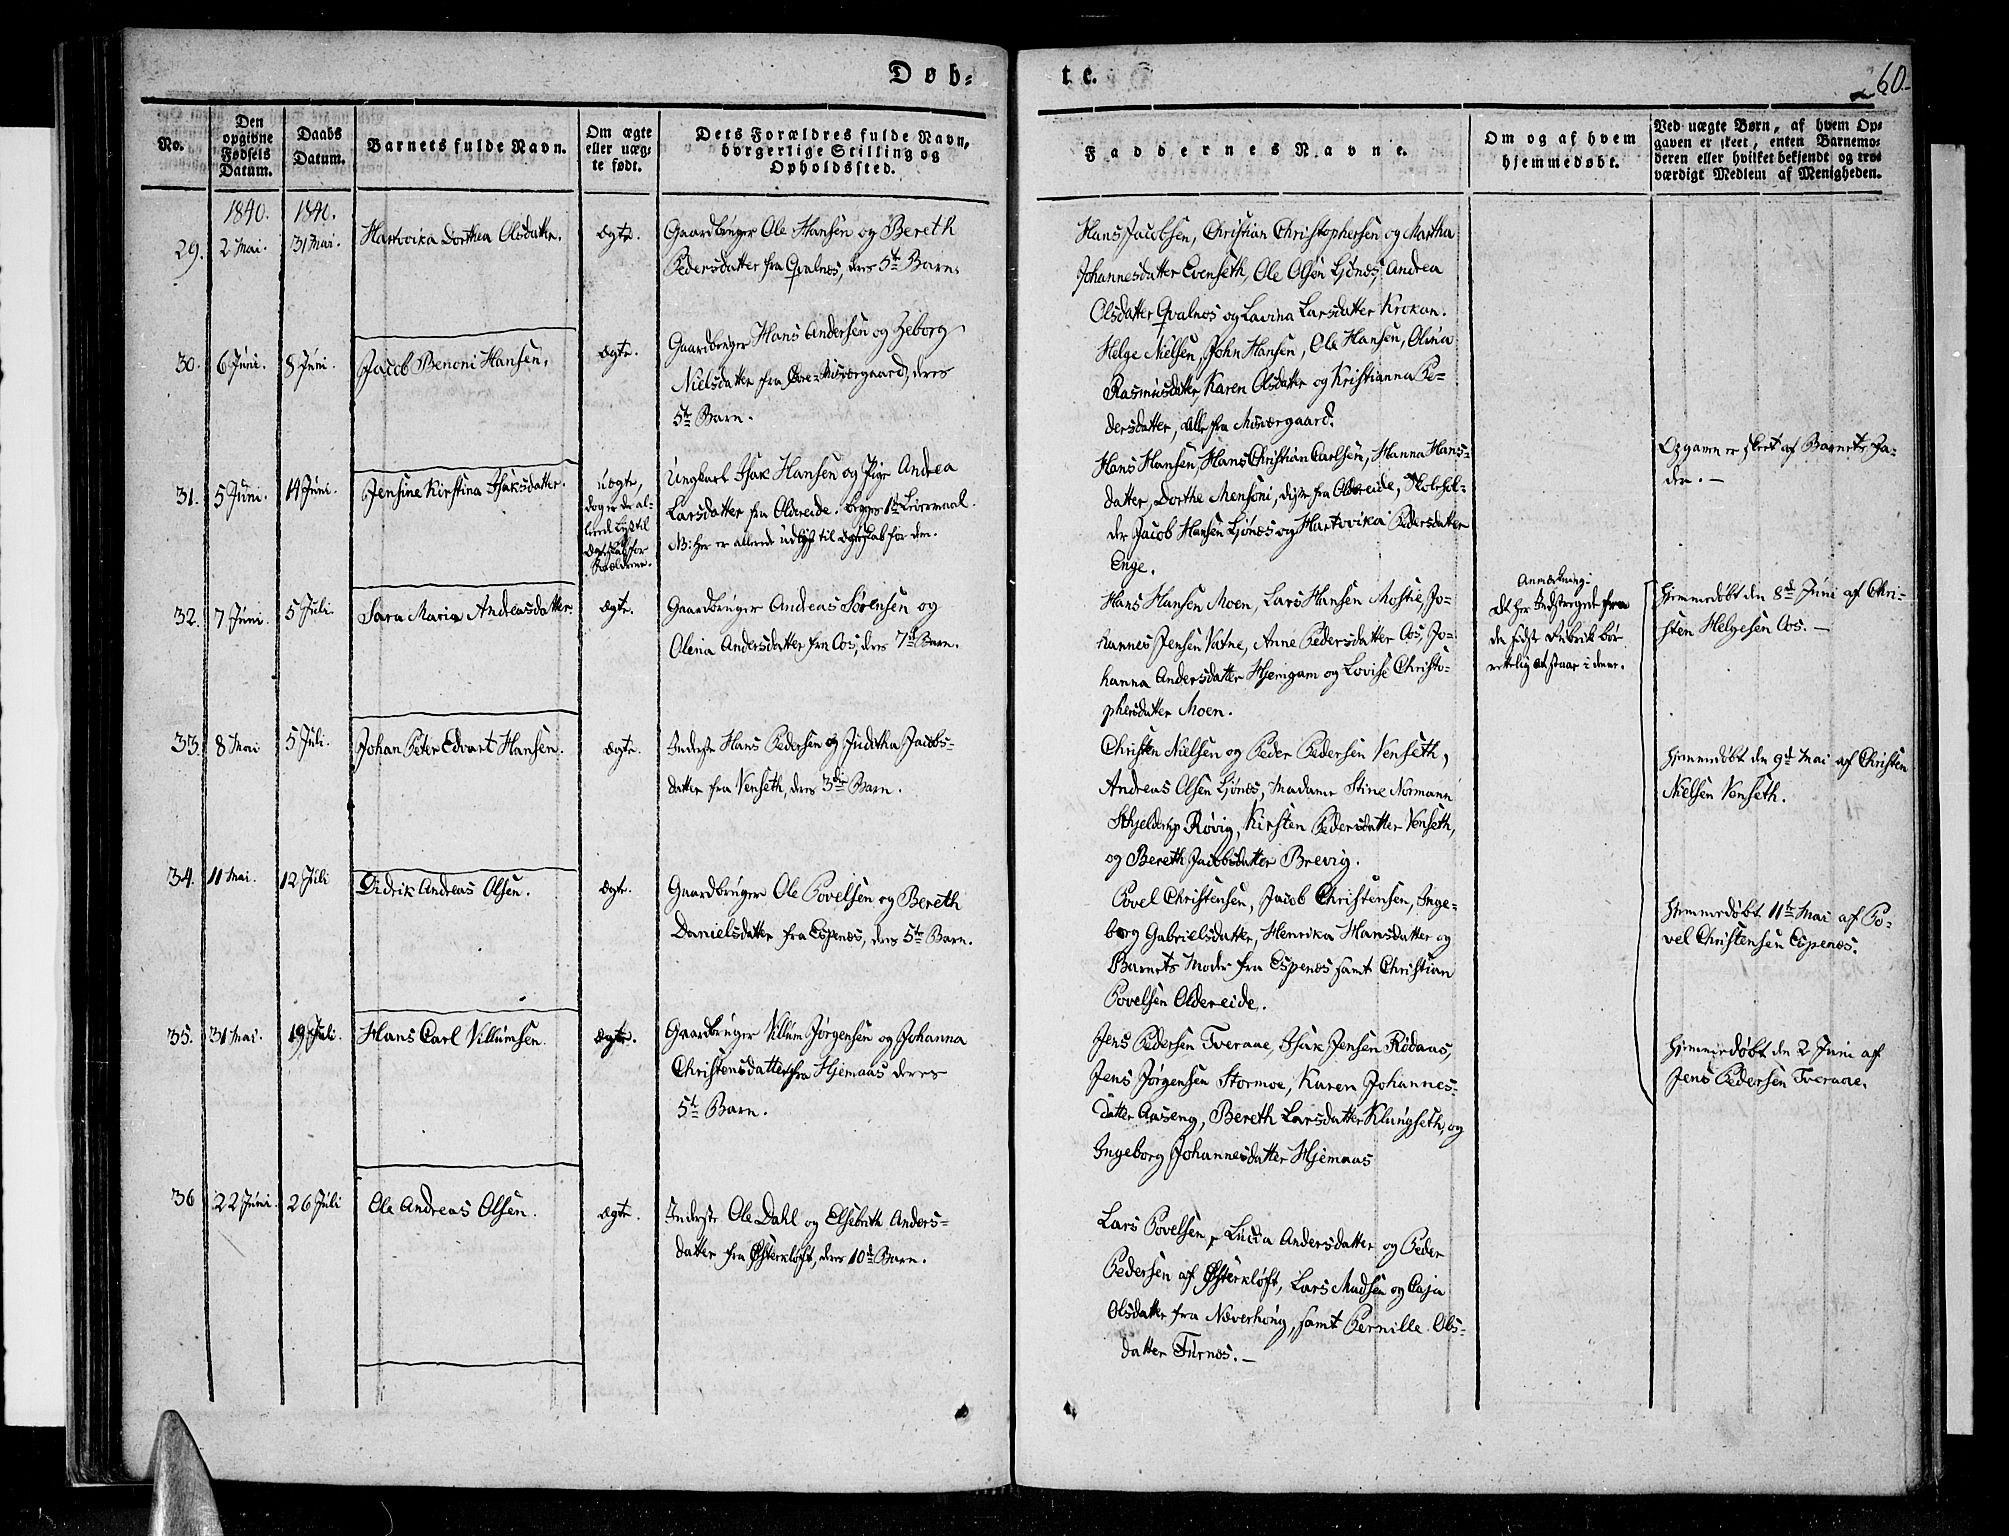 Døb-
te.
60.
No.
Den opgivne Fødsels Datum.
Daabs Datum.
Barnets fulde Navn.
Om ægte eller uæg-te født.
Dets Forældres fulde Navn, borgerlige Stilling og Opholdssted.
Faddernes Navne.
Om og af hvem hjemmedøbt.
Ved uægte Børn, af hvem Op-gaven er skeet, enten Barnemo-deren eller hvilket bekjendt og tro-værdigt Medlem af Menigheden.
1840. 1840.
29. 2 Mai. 31 Mai. Hartvika Dorthea Olsdatter. Ægte.
Gaardbruger Ole Hansen og Bereth
Pedersdatter fra Qvalnes, deres 5te Barn.
Hans Jacobsen, Christian Christophersen og Martha
Johannesdatter Evenseth, Ole Olsen Ljønes, Andrea
Olsdatter Qvalnes og Lavina Larsdatter Krokan.
30. 6 Juni. 8 Juni. Jacob Benoni Hansen. Ægte.
Gaardbruger Hans Andersen og Zeborg
Nielsdatter fra Misværgaard, deres
5te Barn.
Helge Nielsen, John Hansen, Ole Hansen, Olina
Rasmusdatter, Karen Olsdatter og Kristianna Pe-
dersdatter, alle fra Misværgaard.
31. 5 Juni. 14 Juni. Jensine Kirstina Isaksdatter.
uægte,
dog er de al-
lerede lyst til
Ægteskab for
Forældrene.
Ungkarl Isak Hansen og Pige Andrea
Larsdatter fra Oldereide. begges 1ste Leiermaal.
NB: her er allerede udlyst til Ægteskab for dem.
Hans Hansen, Hans Christian Carlsen, Hanna Hans-
datter, Dorthe Mensoni, disse fra Oldereide, Skolehol-
der Jacob Hansen Ljønes og Hartvika Pedersdatter
Enge.
Opgaven er skeet af Barnets Fa-
der. —
32. 7 Juni. 5 Juli. Sara Maria Andreasdatter. Ægte.
Gaardbruger Andreas Sørensen og
Olina Andersdatter fra Oos, deres 7de Barn.
Hans Hansen Moen, Lars Hansen Mostie, Jo-
hannes Jensen Vatne, Anne Pedersdatter Oos, Jo-
hanna Andersdatter Hjemgam og Lovise Christo-
phersdatter Moen.
Anmærkning:
Det her Indstregede fra
den sidste Rubrik bør
rettelig at staae i denne.
Hjemmedøbt den 8de Juni af Chri-
sten Helgesen Oos. —
33. 8 Mai 5 Juli. Johan Peter Edvart Hansen. Ægte.
Inderste Hans Pedersen og Juditha Jacobs-
datter fra Venseth, deres 3die Barn.
Christen Nielsen og Peder Pedersen Venseth,
Andreas Olsen Ljønes, Madame Stine Normann
Schjelderup Røvig, Kirsten Pedersdatter Venseth,
og Bereth Jacobsdatter Brevig.
Hjemmedøbt den 9de Mai af Christen
Nielsen Venseth.
34. 11 Mai. 12 Juli Didrik Andreas Olsen. Ægte.
Gaardbruger Ole Povelsen og Bereth
Danielsdatter fra Espenæs, deres 5te Barn.
Povel Christensen, Jacob Christensen, Inge-
borg Gabrielsdatter, Henrika Hansdatter og
Barnets Moder fra Espenæs samt Christian
Povelsen Oldereide.
Hjemmedøbt 11te Mai af Po-
vel Christensen Espenæs.
35. 31 Mai. 19 Juli. Hans Carl Villumsen. Ægte.
Gaardbruger Villum Jørgensen og Johanna
Christensdatter fra Hjemaas deres
5te Barn.
Jens Pedersen Tveraae, Isak Jensen Rødaas,
Jens Jørgensen Stormoe, Karen Johannes-
datter Aaseng, Bereth Larsdatter Klungseth, og
Ingeborg Johannesdatter Hjemaas
Hjemmedøbt den 2 Juni af
Jens Pedersen Tveraae.
36 22 Juni. 26 Juli Ole Andreas Olsen. Ægte.
Inderste Ole Dahl og Elsebeth Anders-
datter fra Østerkløft, deres 10de Barn.
Lars Povelsen, Lucia Andersdatter og Peder
Pedersen af Østerkløft, Lars Madsen og Caja
Olsdatter fra Næverhoug, samt Pernille Ols-
datter Furnes. —